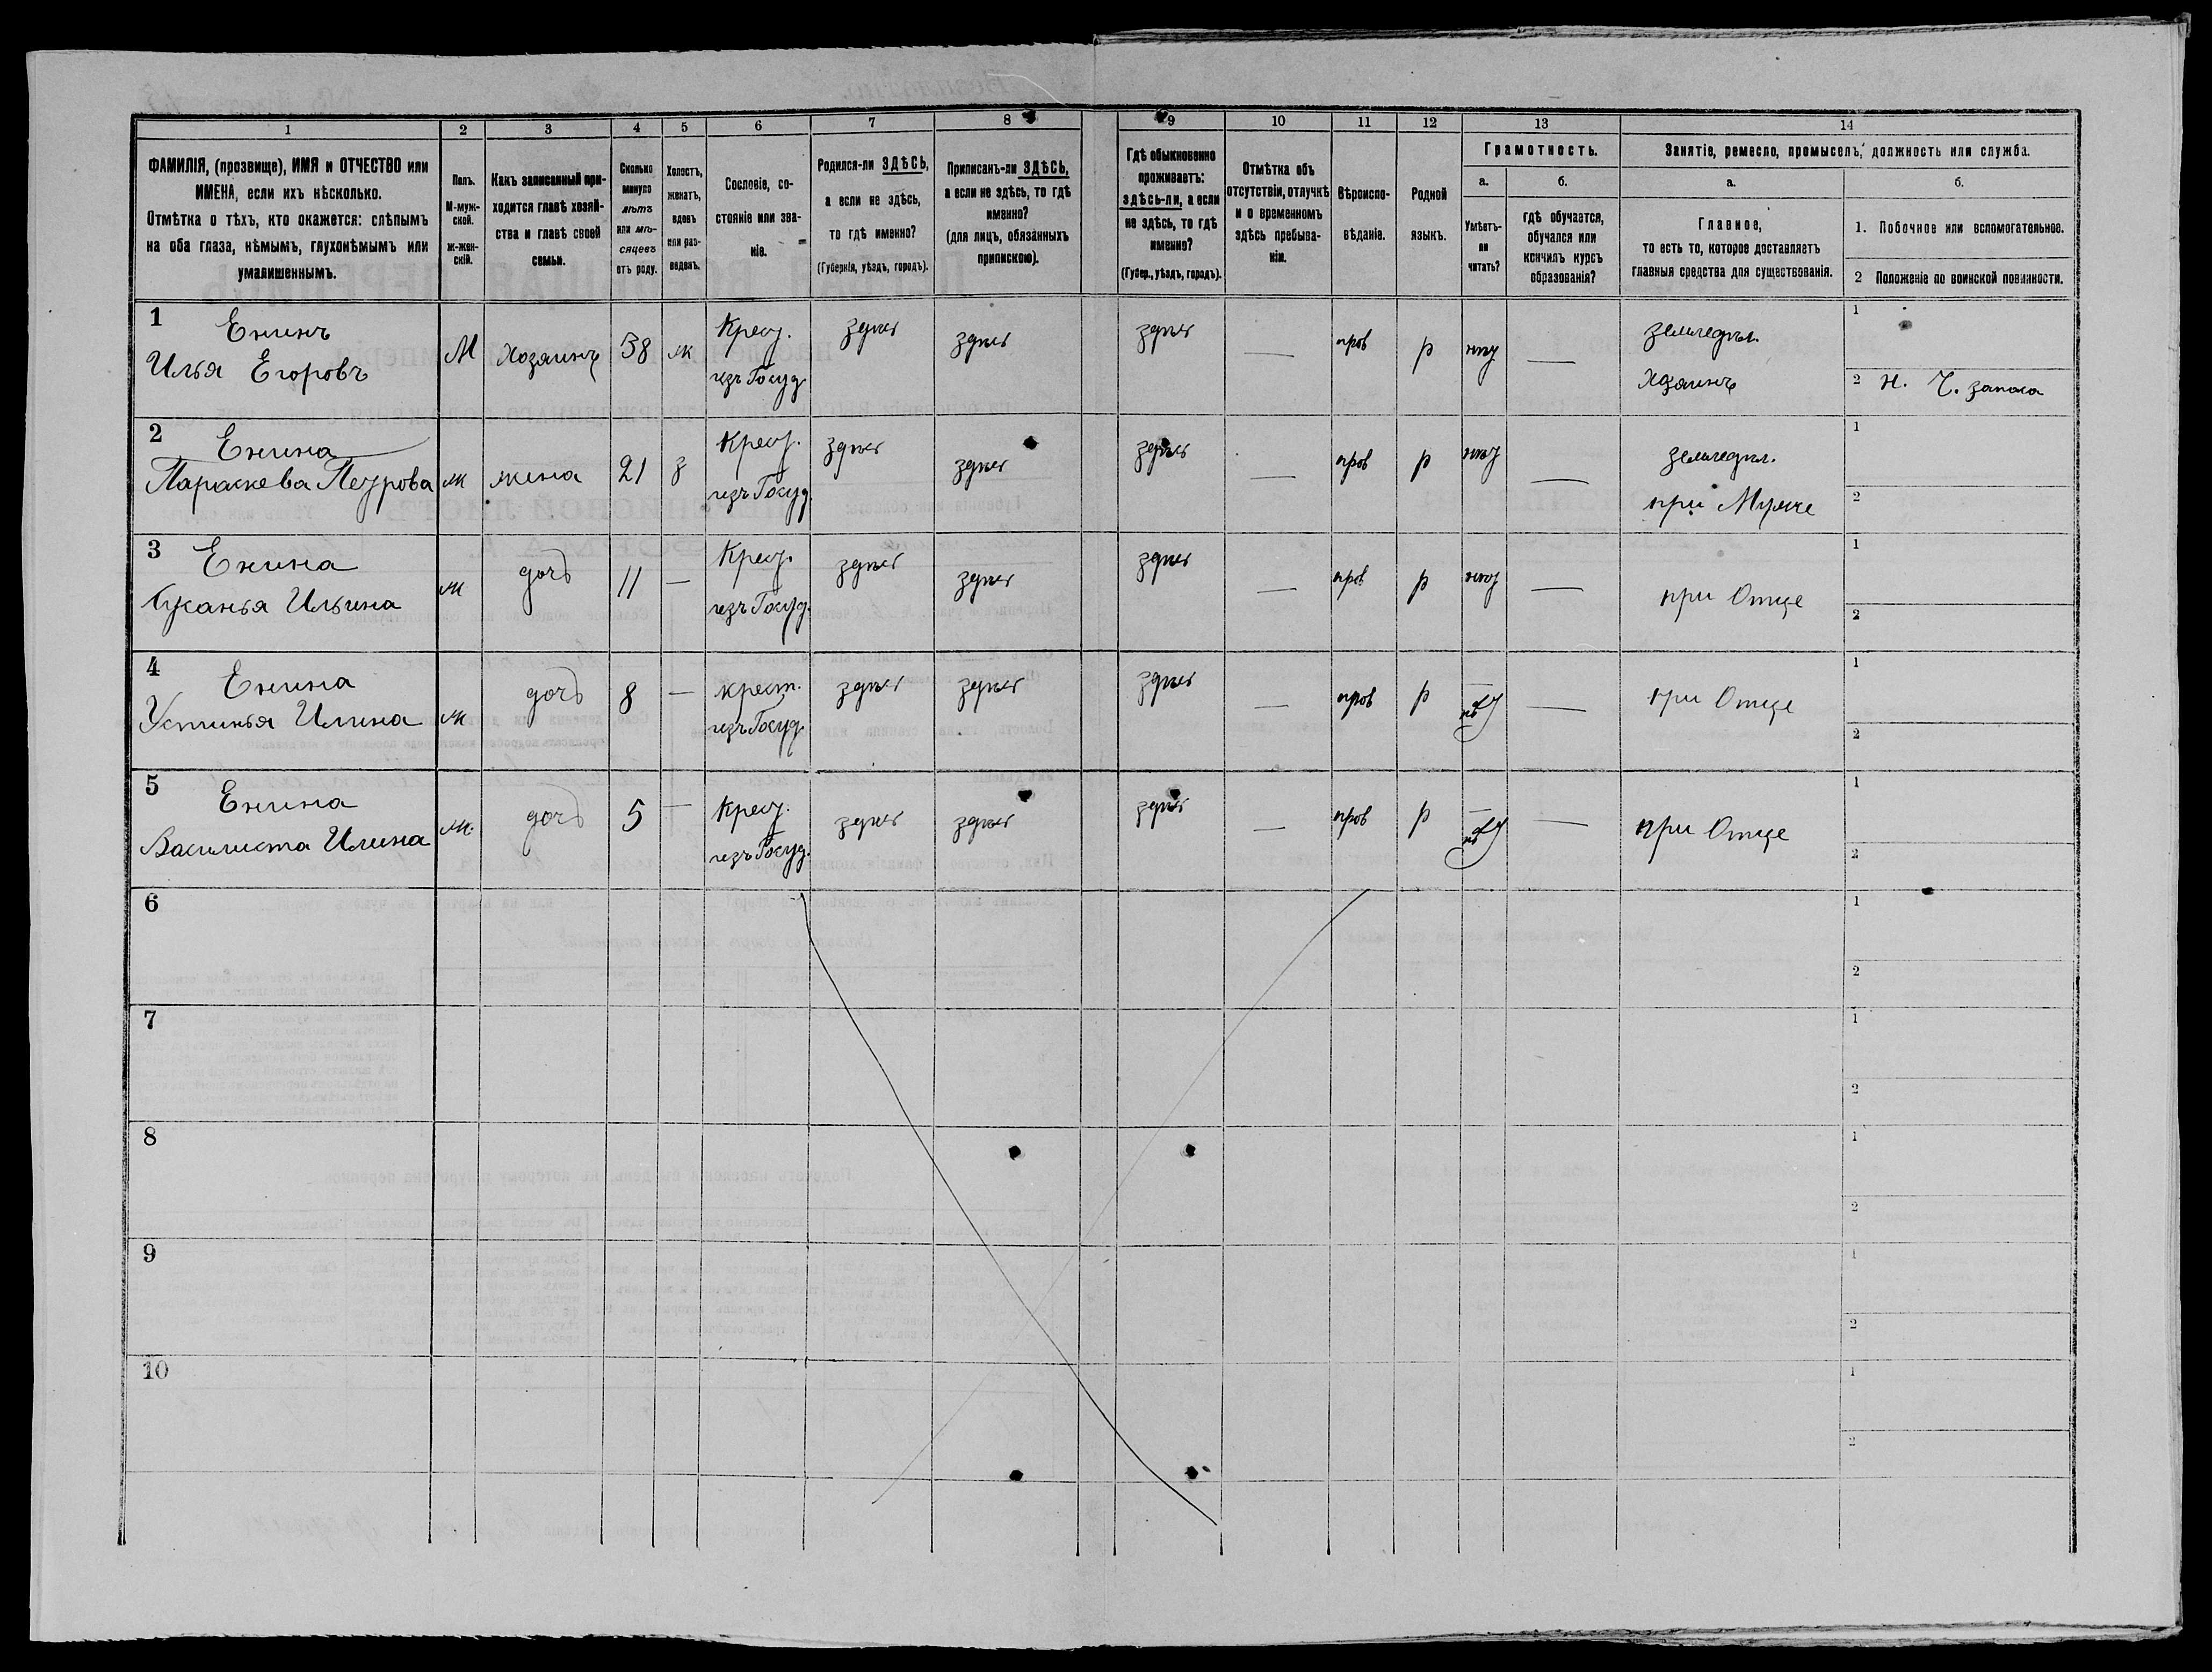 1 2 3 4 5 6 7 8 9 10 11 12 13 14
ФАМИЛІЯ, (прозвище), ИМЯ и ОТЧЕСТВО или
ИМЕНА, если ихъ нѣсколько.
Отмѣтка о тѣхъ, кто окажется: слѣпымъ
на оба глаза, нѣмымъ, глухонѣмымъ или
умалишеннымъ.
Полъ.
М-муж-
ской.
ж-жен-
скій.
Какъ записанный при-
ходится главѣ хозяй-
ства и главѣ своей
семьи.
Сколько
минуло
лѣтъ
или мѣ-
сяцевъ
отъ роду.
Холостъ,
женатъ,
вдовъ
или раз-
веденъ.
Сословіе, со-
стояніе или зва-
ніе.
Родился-ли ЗДѢСЬ,
а если не здѣсь,
то гдѣ именно?
(Губернія, уѣздъ, городъ).
Приписанъ-ли ЗДѢСЬ,
а если не здѣсь, то гдѣ
именно?
(для лицъ, обязанныхъ
припискою).
Гдѣ обыкновенно
проживаетъ:
здѣсь-ли, а если
не здѣсь, то гдѣ
именно?
(Губер., уѣздъ, городъ).
Отмѣтка объ
отсутствіи, отлучкѣ
и о временномъ
здѣсь пребыва-
ніи.
Вѣроиспо-
вѣданіе.
Родной
языкъ.
Грамотность.
а.
Умѣетъ-
ли
читать?
б.
гдѣ обучается,
обучался или
кончилъ курсъ
образованія?
Занятіе, ремесло, промыселъ, должность или служба.
а.
Главное,
то есть то, которое доставляетъ
главныя средства для существованія.
б.
1. Побочное или вспомогательное.
2 Положеніе по воинской повинности.
1 Енинъ
Илья Егоровъ
М Хозяинъ 38 ж Крест.
изъ Госуд.
здѣсь здѣсь здѣсь — пров р нѣт —
земледѣл.
Хозяинъ
1
2 н. Ч. запаса
2 Енина
Параскева Петрова
ж жена 21 з Крест.
изъ Госуд.
здѣсь здѣсь здѣсь — пров р нѣт —
земледѣл.
при Мужѣ
1
2
3 Енина
Ильина
ж дочь 11 — Крест.
изъ Госуд.
здѣсь здѣсь здѣсь — пров р нѣт —
при Отце
1
2
4 Енина
Устинья Илина
ж дочь 8 — крест.
изъ Госуд.
здѣсь здѣсь здѣсь — пров р — нѣт —
при Отце
1
2
5 Енина
Василиста Илина
ж. дочь 5 — Крест.
изъ Госуд.
здѣсь здѣсь здѣсь — пров р — нѣт —
при Отце
1
2
6
1
2
7
1
2
8
1
2
9
1
2
10
1
2